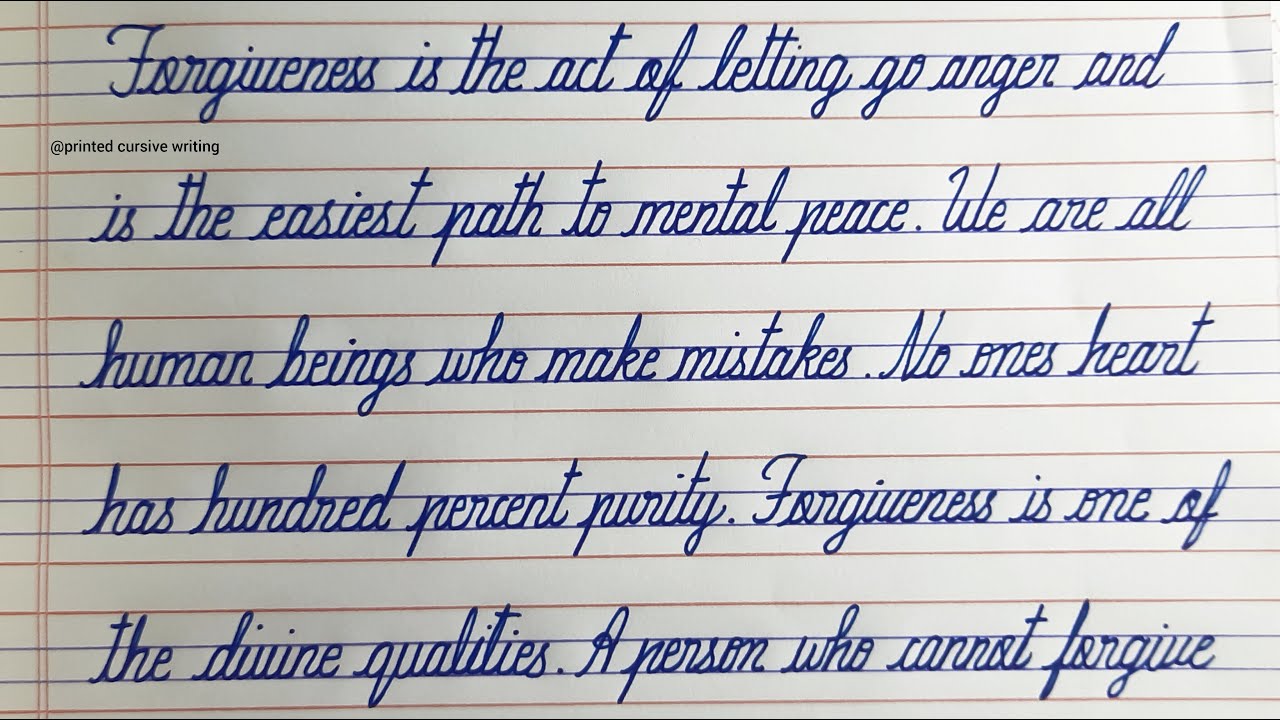 Forgiveness is the act of letting go anger and
@printed cursive writing
is the easiest path to mental peace. We are all
human beings who make mistakes. No ones heart
has hundred percent purity. Forgiveness is one of
the divine qualities. A person who cannot forgive